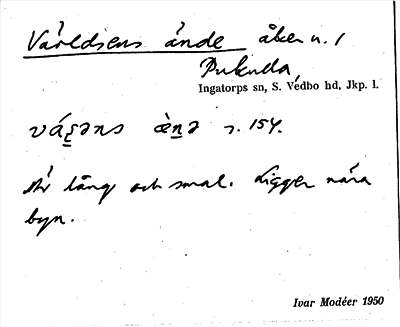 Världsens ände åker n. 1
Pukuda,
Ingatorps sn, S. Vedbo hd, Jkp. l.
s. 154.
Är lång och smal. Ligger nära
byn.
Ivar Modéer 1950